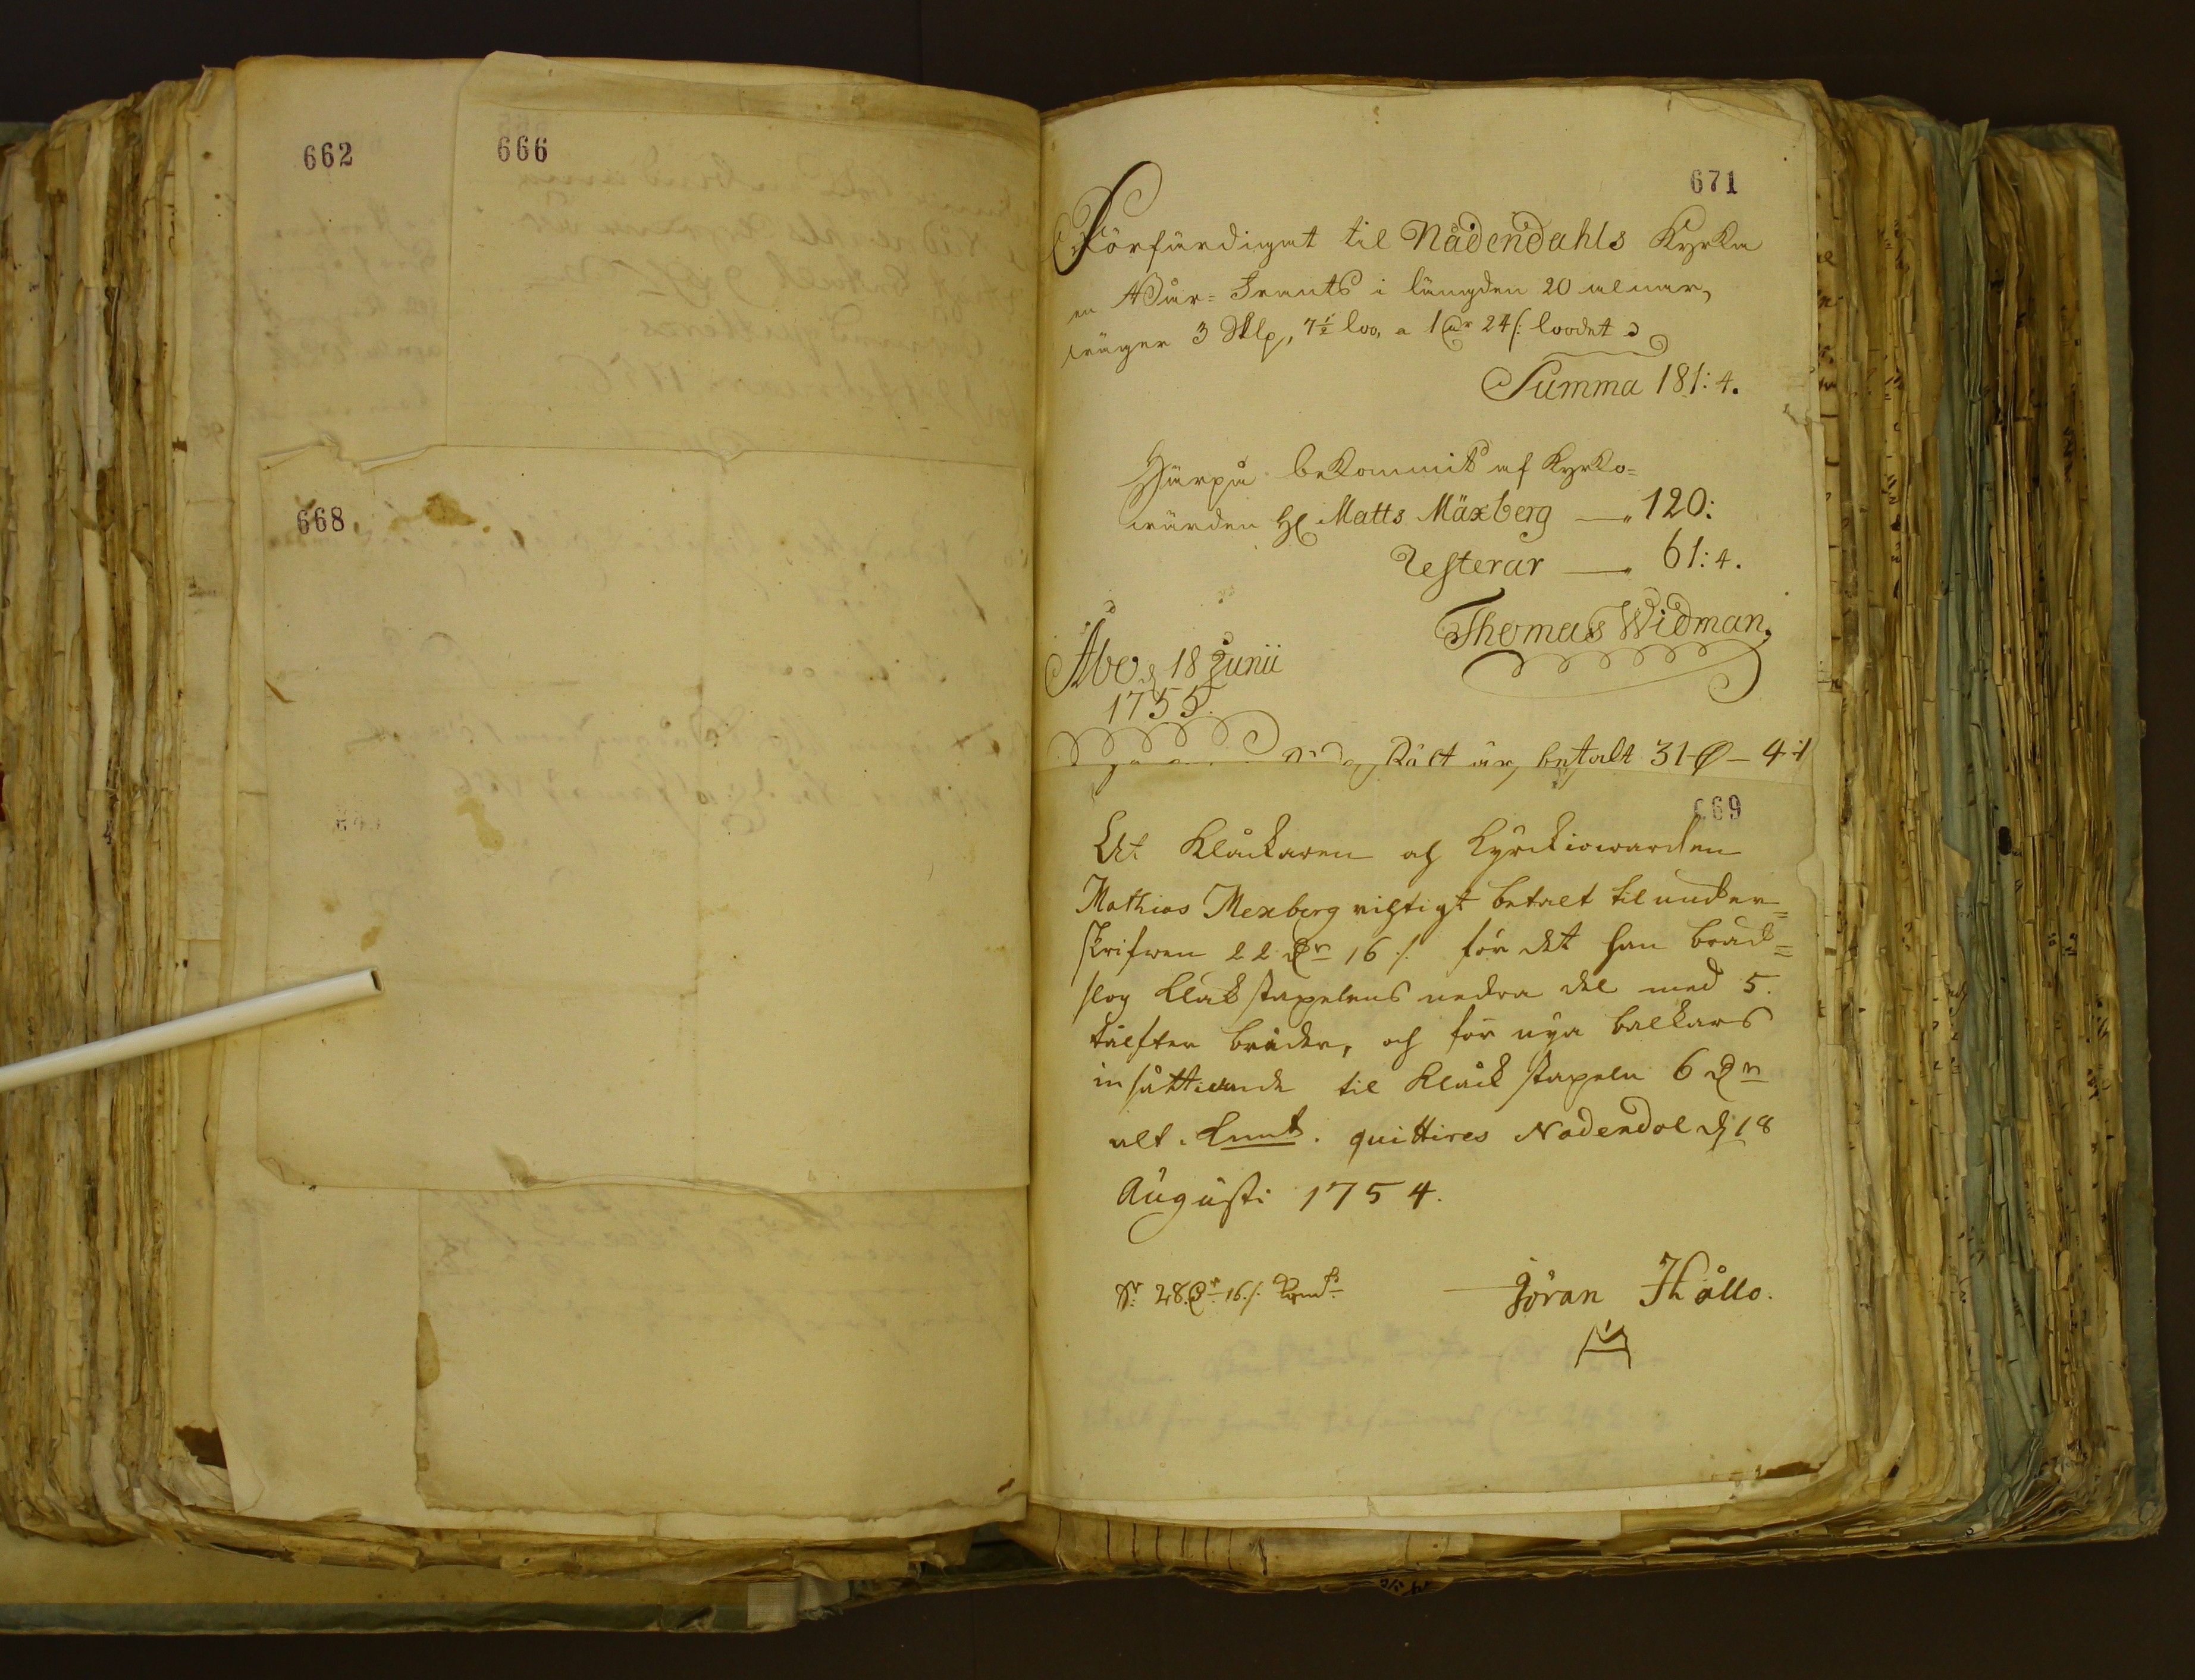 662
666
668
671
Förfärdigat til Nådendahls Kyrka
en Skår-Frants i längden 20 alnar,
wäger 3 Sklp, 7½ lod, a 1 Dr 24 /: loodet
Summa 181: 4.
Härpå bekommit af Kyrko-
wärden H. Matts Mäxberg — 120:
Resterar — 61: 4.
Thomas Widman,
Åbo d. 18 Junii
1755.
Räst är betalt 31 — 4
669
At Klåckaren och Kyrckiowarden
Mathias Mexberg richtigt betalt til under=
skrifwen 22 Dr 16 /. för det han bräd=
slog Klåckstapelens nedra del med 5.
tålfter bräder, och för nya balkars
insättiande til Klåckstapeln 6 Dr
alt. Kmt. quitteres Nodendol d. 18
Augusti 1754.
Sr 28. Dr 16./. Kpmt
Jöran Kållo.